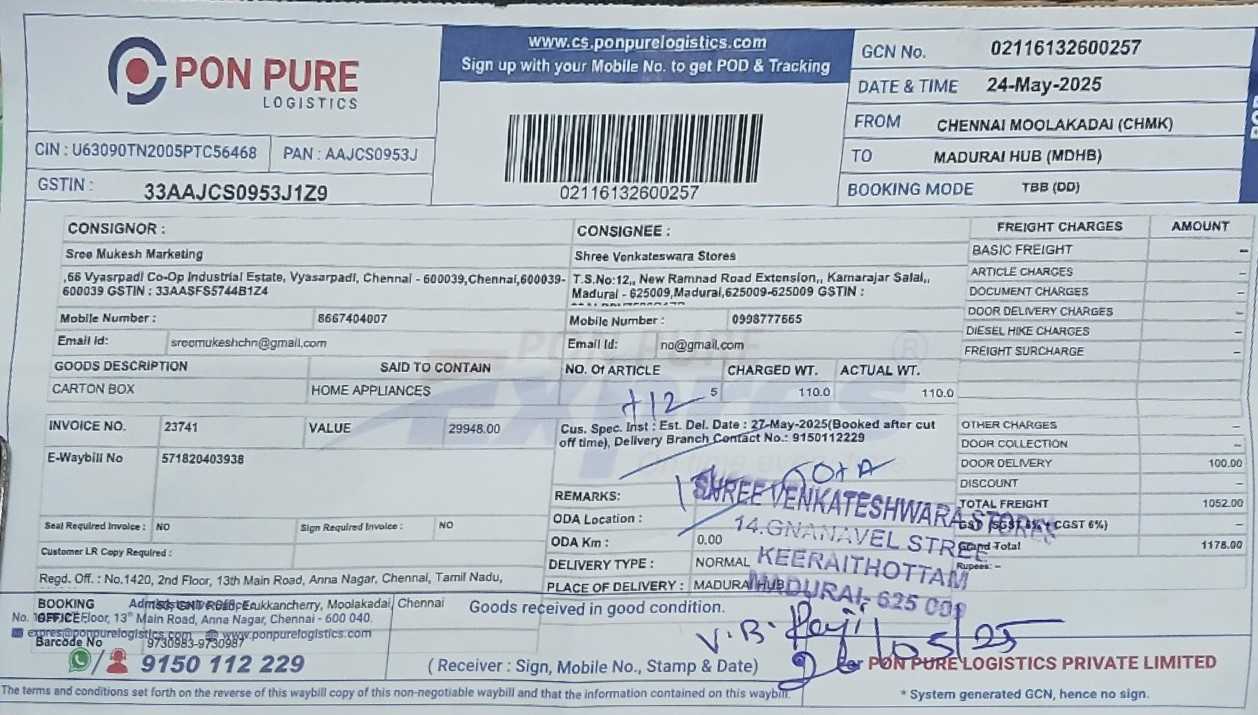 PON PURE
LOGISTICS
www.cs.ponpurelogistics.com
Sign up with your Mobile No. to get POD & Tracking
02116132600257
GCN No. 02116132600257
DATE & TIME 24-May-2025
FROM CHENNAI MOOLAKADAI (CHMK)
TO MADURAI HUB (MDHB)
BOOKING MODE TBB (DD)
CIN : U63090TN2005PTC56468 PAN : AAJCS0953J
GSTIN : 33AAJCS0953J1Z9
CONSIGNOR :
Sree Mukesh Marketing
,66 Vyasrpadi Co-Op Industrial Estate, Vyasarpadi, Chennai - 600039,Chennai,600039-
600039 GSTIN : 33AASFS5744B1Z4
Mobile Number : 8667404007
Email Id: sreemukeshchn@gmail.com
CONSIGNEE :
Shree Venkateswara Stores
T.S.No:12,, New Ramnad Road Extension,, Kamarajar Salai,,
Madurai - 625009,Madurai,625009-625009 GSTIN :
Mobile Number : 0998777665
Email Id: no@gmail.com
GOODS DESCRIPTION SAID TO CONTAIN NO. Of ARTICLE CHARGED WT. ACTUAL WT.
CARTON BOX HOME APPLIANCES 5 110.0 110.0
+12
INVOICE NO. 23741 VALUE 29948.00
E-Waybill No 571820403938
Seal Required Invoice : NO Sign Required Invoice : NO
Customer LR Copy Required :
Cus. Spec. Inst : Est. Del. Date : 27-May-2025(Booked after cut
off time), Delivery Branch Contact No.: 9150112229
REMARKS:
ODA Location :
ODA Km : 0.00
DELIVERY TYPE : NORMAL
PLACE OF DELIVERY : MADURAI HUB
FREIGHT CHARGES AMOUNT
BASIC FREIGHT –
ARTICLE CHARGES –
DOCUMENT CHARGES –
DOOR DELIVERY CHARGES –
DIESEL HIKE CHARGES –
FREIGHT SURCHARGE –
OTHER CHARGES –
DOOR COLLECTION –
DOOR DELIVERY 100.00
DISCOUNT –
TOTAL FREIGHT 1052.00
GST (SGST 6% + CGST 6%) –
Grand Total 1178.00
Rupees: –
SHREE VENKATESHWARA STORES
14.GNANAVEL STREE
KEERAITHOTTAM
MADURAI- 625 009
PON PURE
EXPRESS
Regd. Off. : No.1420, 2nd Floor, 13th Main Road, Anna Nagar, Chennai, Tamil Nadu,
BOOKING
OFFICE
GNT Road, Erukkancherry, Moolakadai, Chennai
Floor, 13th Main Road, Anna Nagar, Chennai - 600 040.
expres@ponpurelogistics.com www.ponpurelogistics.com
Barcode No 9730983-9730987
9150 112 229
Goods received in good condition.
V.B.
/05/25
( Receiver : Sign, Mobile No., Stamp & Date)
for PON PURE LOGISTICS PRIVATE LIMITED
The terms and conditions set forth on the reverse of this waybill copy of this non-negotiable waybill and that the information contained on this waybill.
* System generated GCN, hence no sign.